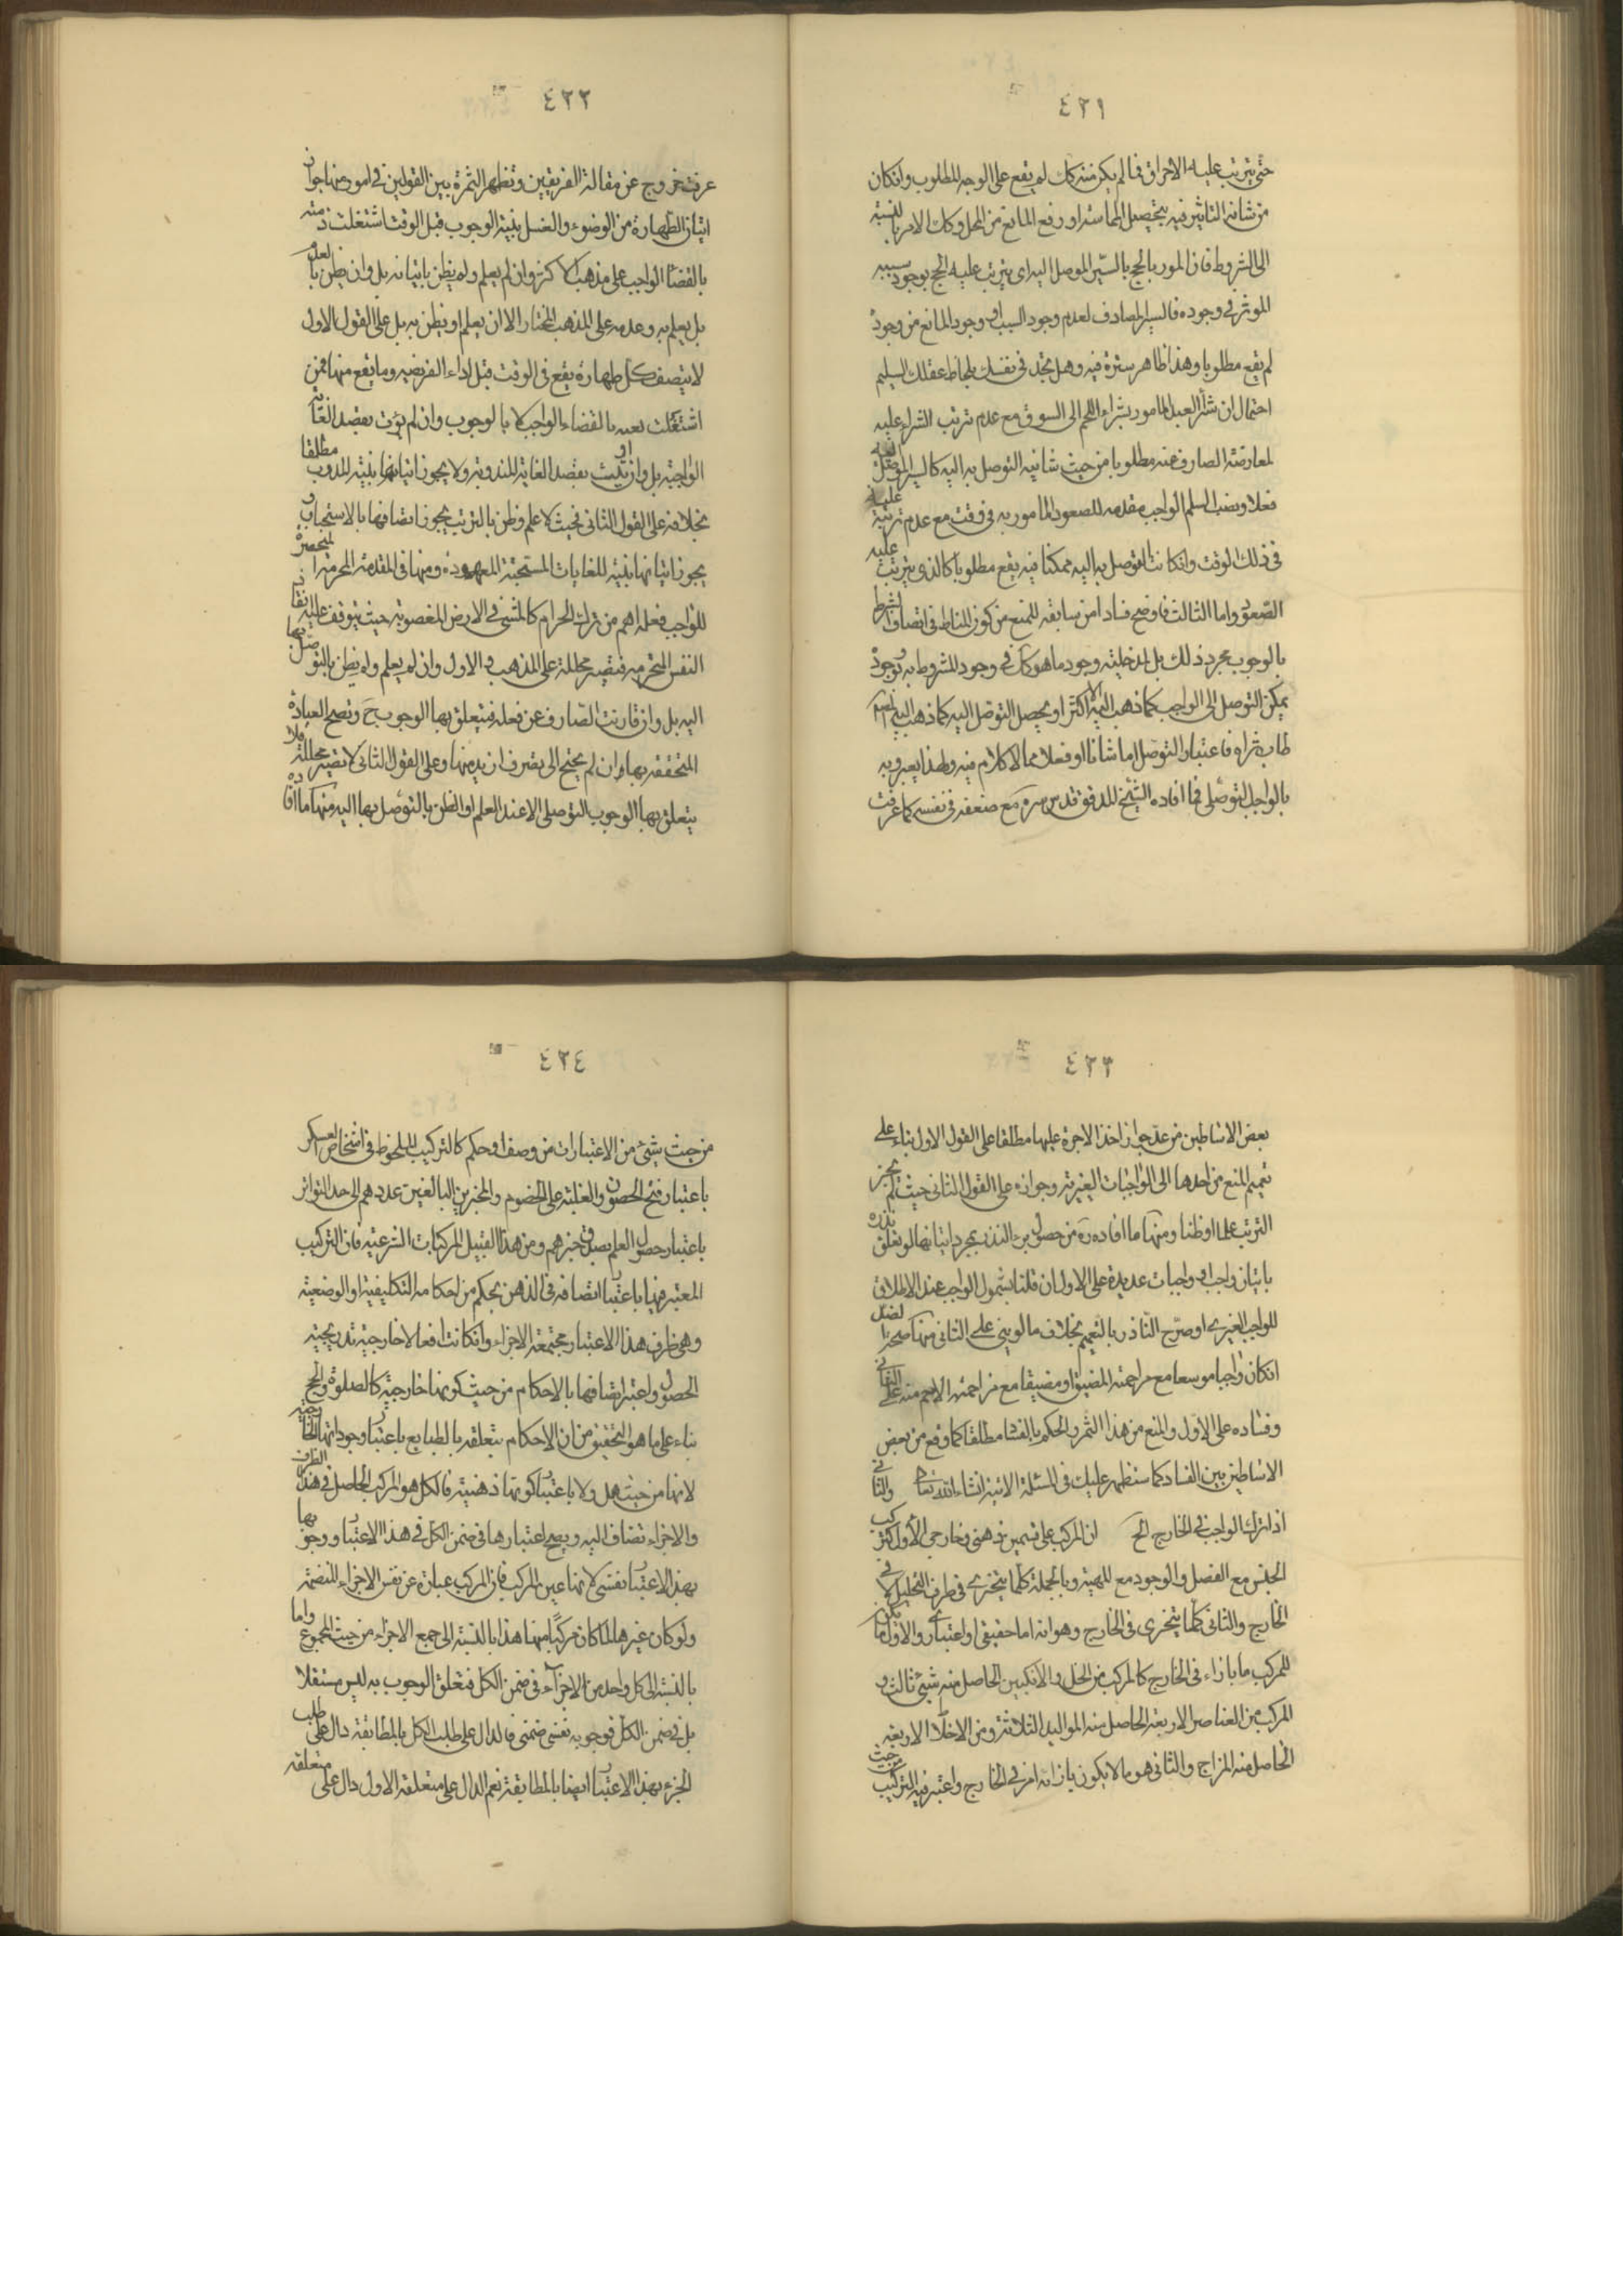 ٤٢١
حتى يترتب عليه الاحراق فما لم يكن منه كك لم يقع على الوجه المطلوب وانكان
من شانه التاثير فيه بتحصيل المماسته او رفع المانع من المحل وكك الامر بالنسبة
الى الشروط فان المور بالحج بالسير الموصل اليه اى يترتب عليه الحج بوجود سببه
الموثر فى وجوده فالسير المصادف لعدم وجود السبب او وجود المانع من وجوده
لم يقع مطلوبا وهذا ظاهر سترة فيه وهل تجد فى نفسك بلحاظ عقلك السليم
احتمال ان العبد المامور بشراء اللحم الى السوق مع عدم ترتب الشراء عليه
لمعارضة الصارف عنه مطلوبا من حيث شانيه التوصل به اليه كالسير الموصل اليه
فعلا ونصب السلم الواجب مقدمه للصعود المامور به فى وقت مع عدم ترتبه عليه
فى ذلك الوقت وانكانت التوصل به اليه ممكنا فيه يقع مطلوبا كالذى يترتب عليه
الصعود واما الثالث فاوضح فسادا من سابقه للمنع من كون المناط فى اتصاف الشرط
بالوجوب مجرد ذلك بل لمدخليته وجود ما هو كك فى وجود المشروط به بوجوده
يمكن التوصل الى الواجب كما ذهب اليه الاكثر او يحصل التوصل اليه كما ذهب اليه
طاب ثراه فاعتبار التوصل اما شانا او فعلا مما لا كلام فيه ولهذا يعبرو به
بالواجب التوصلى فما افاده الشيخ المدقق قدس سره مع ضعفه فى نفسه كما عرفت
٤٢٢
عرفت خروج عن مقالة الفريقين وتظهر الثمرة بين القولين فى امور منها جواز
اتيان الطهارة من الوضوء والغسل بنية الوجوب قبل الوقت اشتغلت ذمته
بالقضاء الواجب على مذهب الاكثر وان لم يعلم ولم يظن باتيانه بل وان ظن بالعدم
بل يعلم به وعدمه على المذهب المختار الا ان يعلم او يظن به بل على القول الاول
لا يتصف كل طهارة يقع فى الوقت قبل اداء الفريضه وما يقع منها ممن
اشتغلت بالقضاء الواجب الا بالوجوب وان لم يؤت بقصد الغاية
الواجبة بل وان اوتيت بقصد الغاية المندوبة ولا يجوز اتيانها بنية الندب مطلقا
بخلافه على القول الثانى فحيث لا علم وظن بالترتب يجوز اتصافها بالاستحباب و
يجوز اتيانها بنية للغايات المستحبة المعهوده ومنها فى المقدمة المحرمة المنحصرة
للواجب فعله اهم من ترك الحرام كالمشى فى الارض المغصوبه حيث يتوقف عليه انقاذ
النفس المحترمه فتصير محللة على المذهب الاول وان لم يعلم ولم يظن بالتوصل بها
اليه بل وان قارنت الصارف عن فعله فيتعلق بها الوجوب ح وتصح العبادة
المتحققه بها وان لم يحتج الى تصرف ازيد منها وعلى القول الثانى لا تصير محللة فلا
يتعلق بها الوجوب التوصلى الا عند العلم او الظن بالتوصل بها اليه منها ما افاده
٤٢٣
بعض الاساطين من عدم جواز اخذ الاجرة عليها مطلقا على القول الاول بناء على
تعميم المنع من احدها الى الواجبات الغيرية وجوازه على القول الثانى حيث لم يحرز
الترتب علما او ظنا ومنها ما افاده ره من حصول برء النذر بمجرد اتيانها لو تعلق نذره
باتيان واجب او واجبات عديدة على الاول ان قلنا بشمول الواجب عند الاطلاق
للواجب الغيرى او صرح الناذر بالتعميم بخلاف ما لو بنى على الثانى منها صحة الضد
انكان واجبا موسعا مع مزاحمة المضيق او مضيقا مع مزاحمة الاهم منه على الثانى
وفساده على الاول والمنع من هذا الثمر والحكم بالفساد مطلقا كما وقع من بعض
الاساطين بين الفساد كما ستظهر عليك فى المسئلة الاتية انشاء الله تعالى والثانى
اذا ترك الواجب فى الخارج الخ ان المركب على قسمين ذهنى وخارجى الاول كتركب
الجنس مع الفصل والوجود مع المهية وبالجملة كلما يتجزى فى ظرف التحليل لا فى
الخارج والثانى كلما يتجزى فى الخارج وهو انه اما حقيقى او اعتبارى والاول ما يكون
للمركب ما بازاء فى الخارج كالمركب من الخل والانكبين الحاصل منه شيئ ثالث و
المركب من العناصر الاربعة الحاصل منه المواليد الثلاثة ومن الاخلاط الاربعه
الحاصل منه المزاج والثانى هو ما لا يكون بازائه امر فى الخارج واعتبر فيه التركيب من حيث
٤٢٤
من حيث شيئ من الاعتبارات من وصف او حكم كالتركيب الملحوظ فى اشخاص العسكر
باعتبار فتح الحصون والغلبة على الخصوم والمخبرين البالغين عددهم الى حد التواتر
باعتبار حصول العلم بصدق خبرهم ومن هذا القبيل المركبات الشرعيه فان التركيب
المعتبر فيها باعتبار اتصافه فى الذهن بحكم من احكامه التكليفية او الوضعية
وهى ظرف هذا الاعتبار مجتمعة الاجزاء وانكانت افعالا خارجية تدريجية
الحصول واعتبر اتصافها بالاحكام من حيث كونها خارجية كالصلوة والحج
بناء على ما هو التحقيق من ان الاحكام يتعلقه بالطبايع باعتبار وجوداتها الخارجية
لانها من حيث هى ولا باعتبار كونها ذهنيته فالكل هو المركب الحاصل فى هذا الظرف
والاجزاء تضاف اليه ويصح اعتبارها فى ضمن الكل فى هذا الاعتبار ووجوبها
بهذ الاعتبار نفسى لانها عين المركب فان المركب عبارة عن نفس الاجزاء المنضمة
ولو كان غيرها لما كان مركبا منها هذا بالنسبة الى جمع الاجزاء من حيث المجموع واما
بالنسبة الى كل واحد من الاجزاء فى ضمن الكل فتعلق الوجوب به ليس مستقلا
بل فى ضمن الكل فوجوبه نفسى ضمنى فالدال على طلب الكل بالمطابقة دال على طلب
الجزء بهذ الاعتبار ايضا بالمطابقة نعم الدال على متعلقه الاول دال على متعلقه